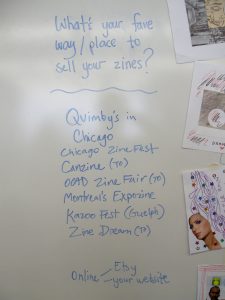 What's your fave
way/place to
sell your zines?
Quimby's in
Chicago
Chicago Zine Fest
Canzine (TO)
OCAD Zine Fair (TO)
Montreal's Expozine
Kazoo Fest (Guelph)
Zine Dream (TO)
Etsy
Online
your website